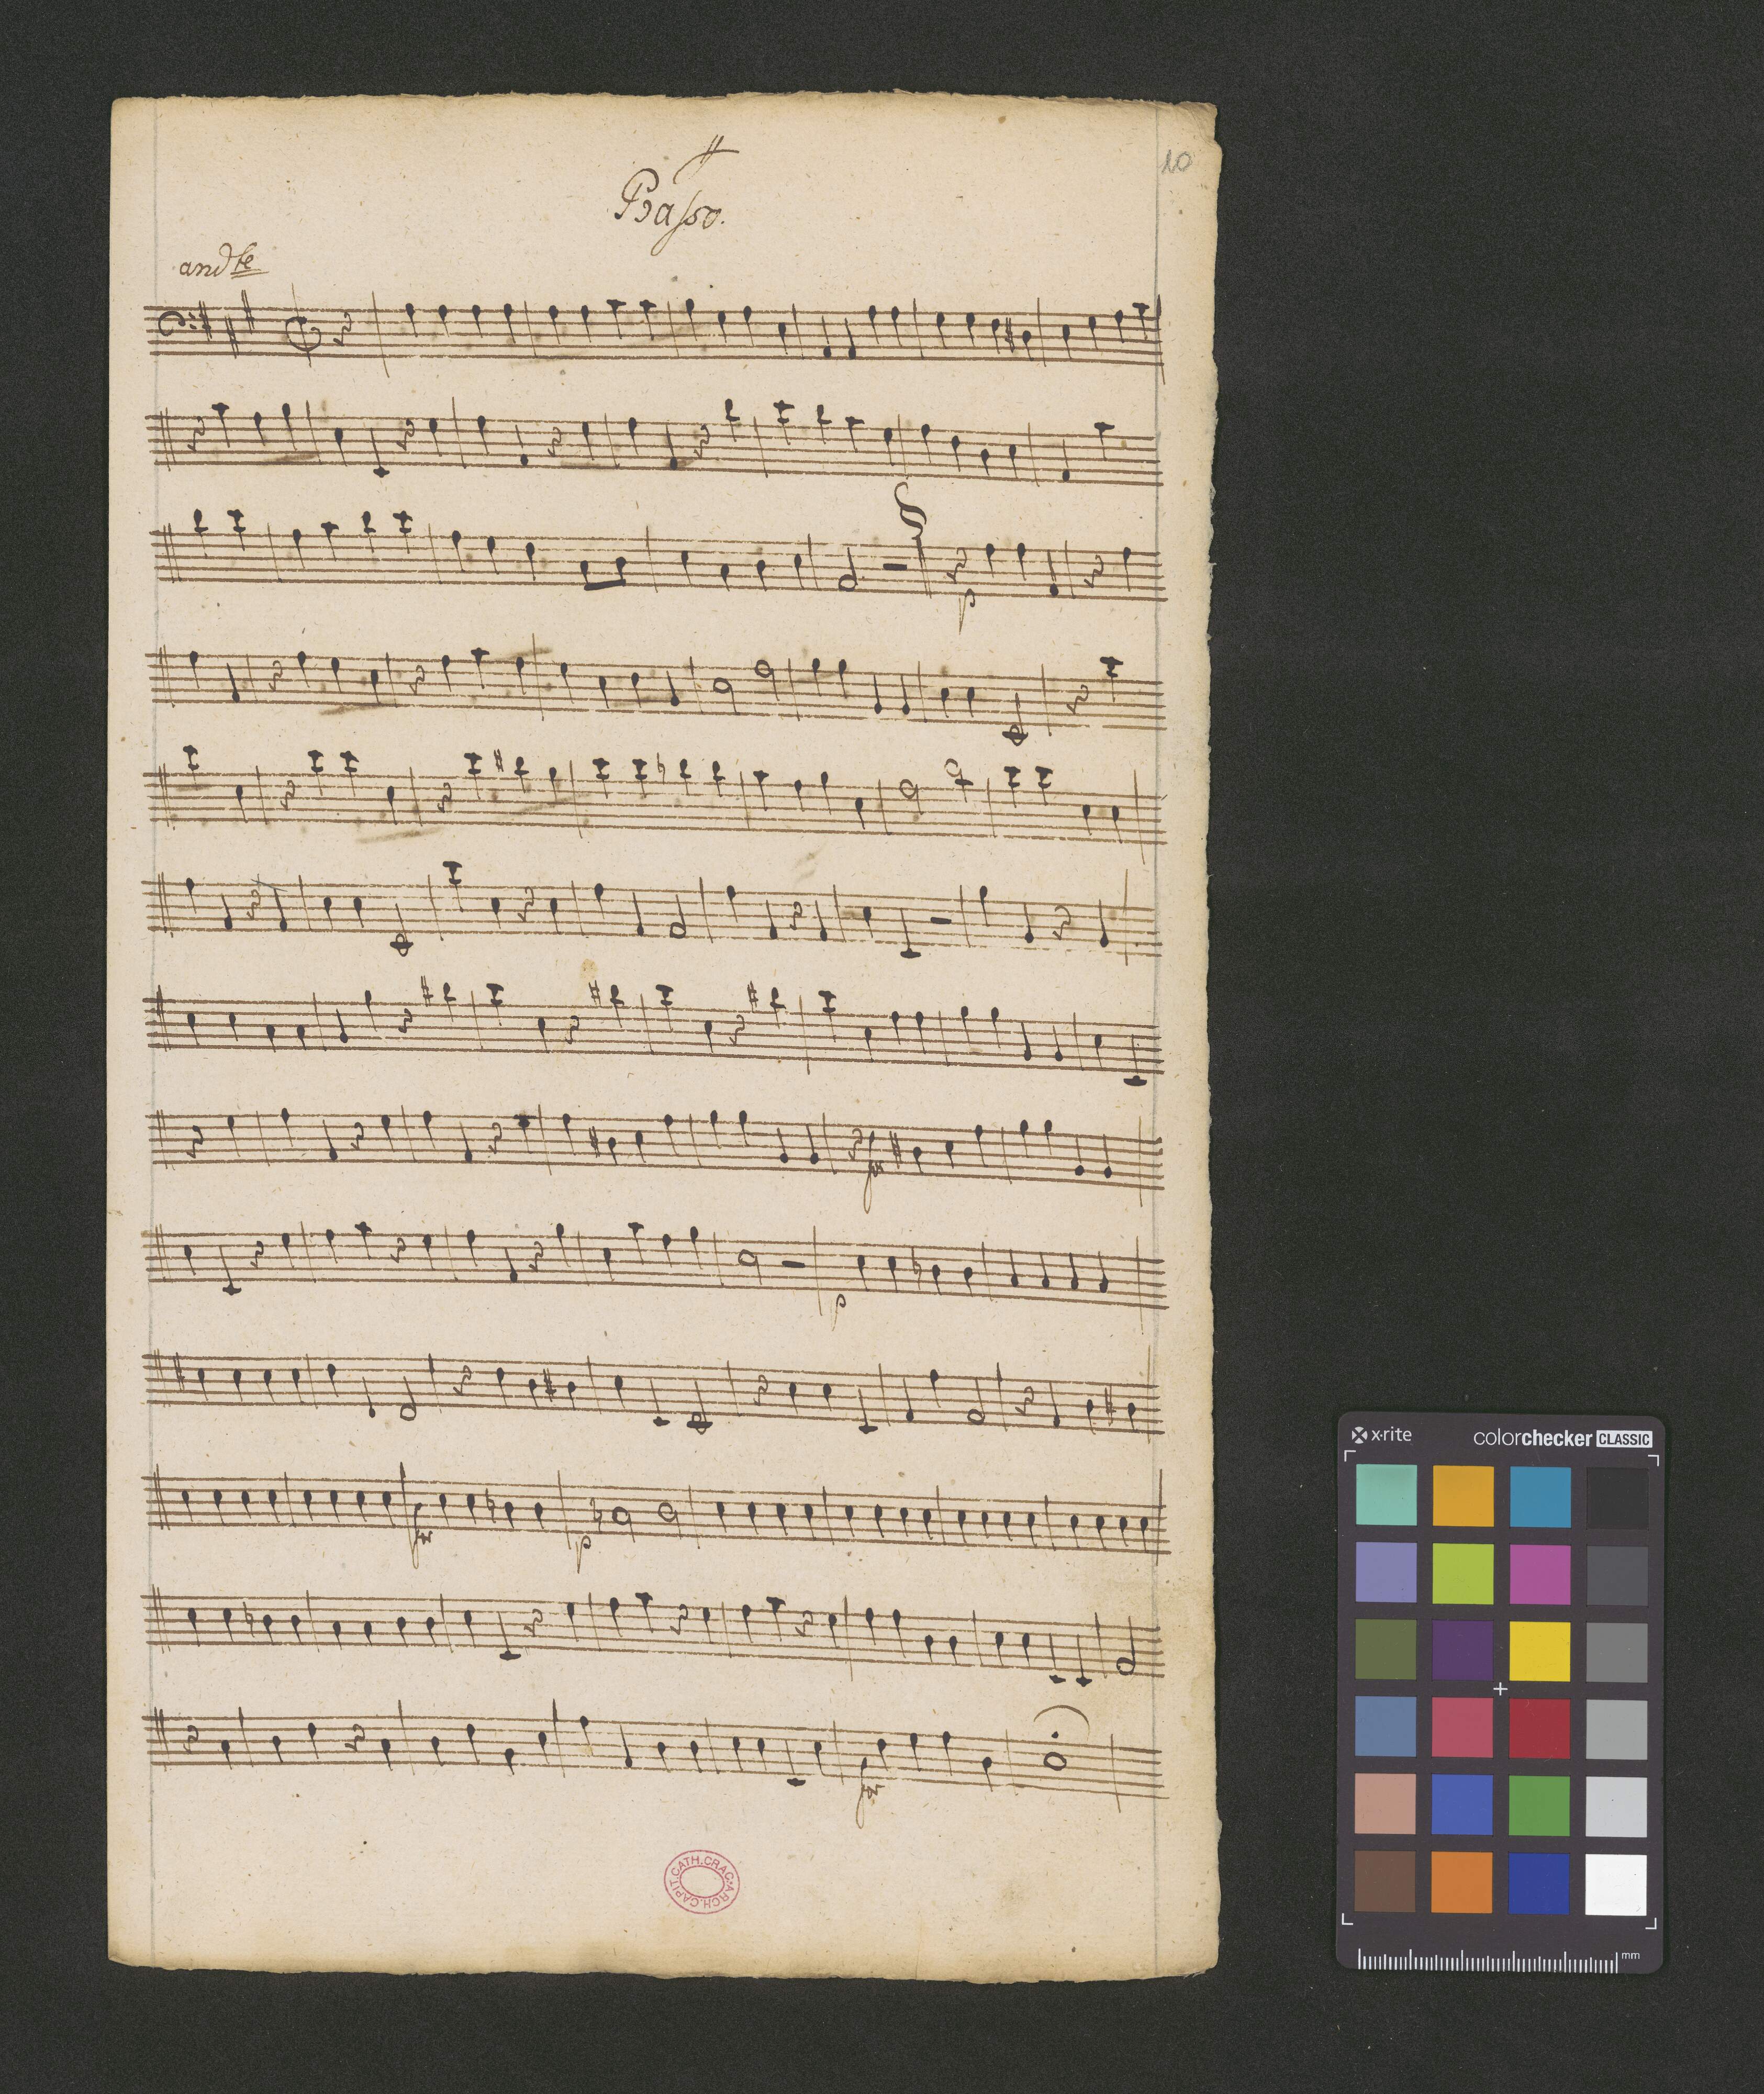 10
Basso.
andte
p
for
p
for
p
for
ARCH.CAPIT.CATH.CRAC.
x-rite
colorchecker CLASSIC
mm